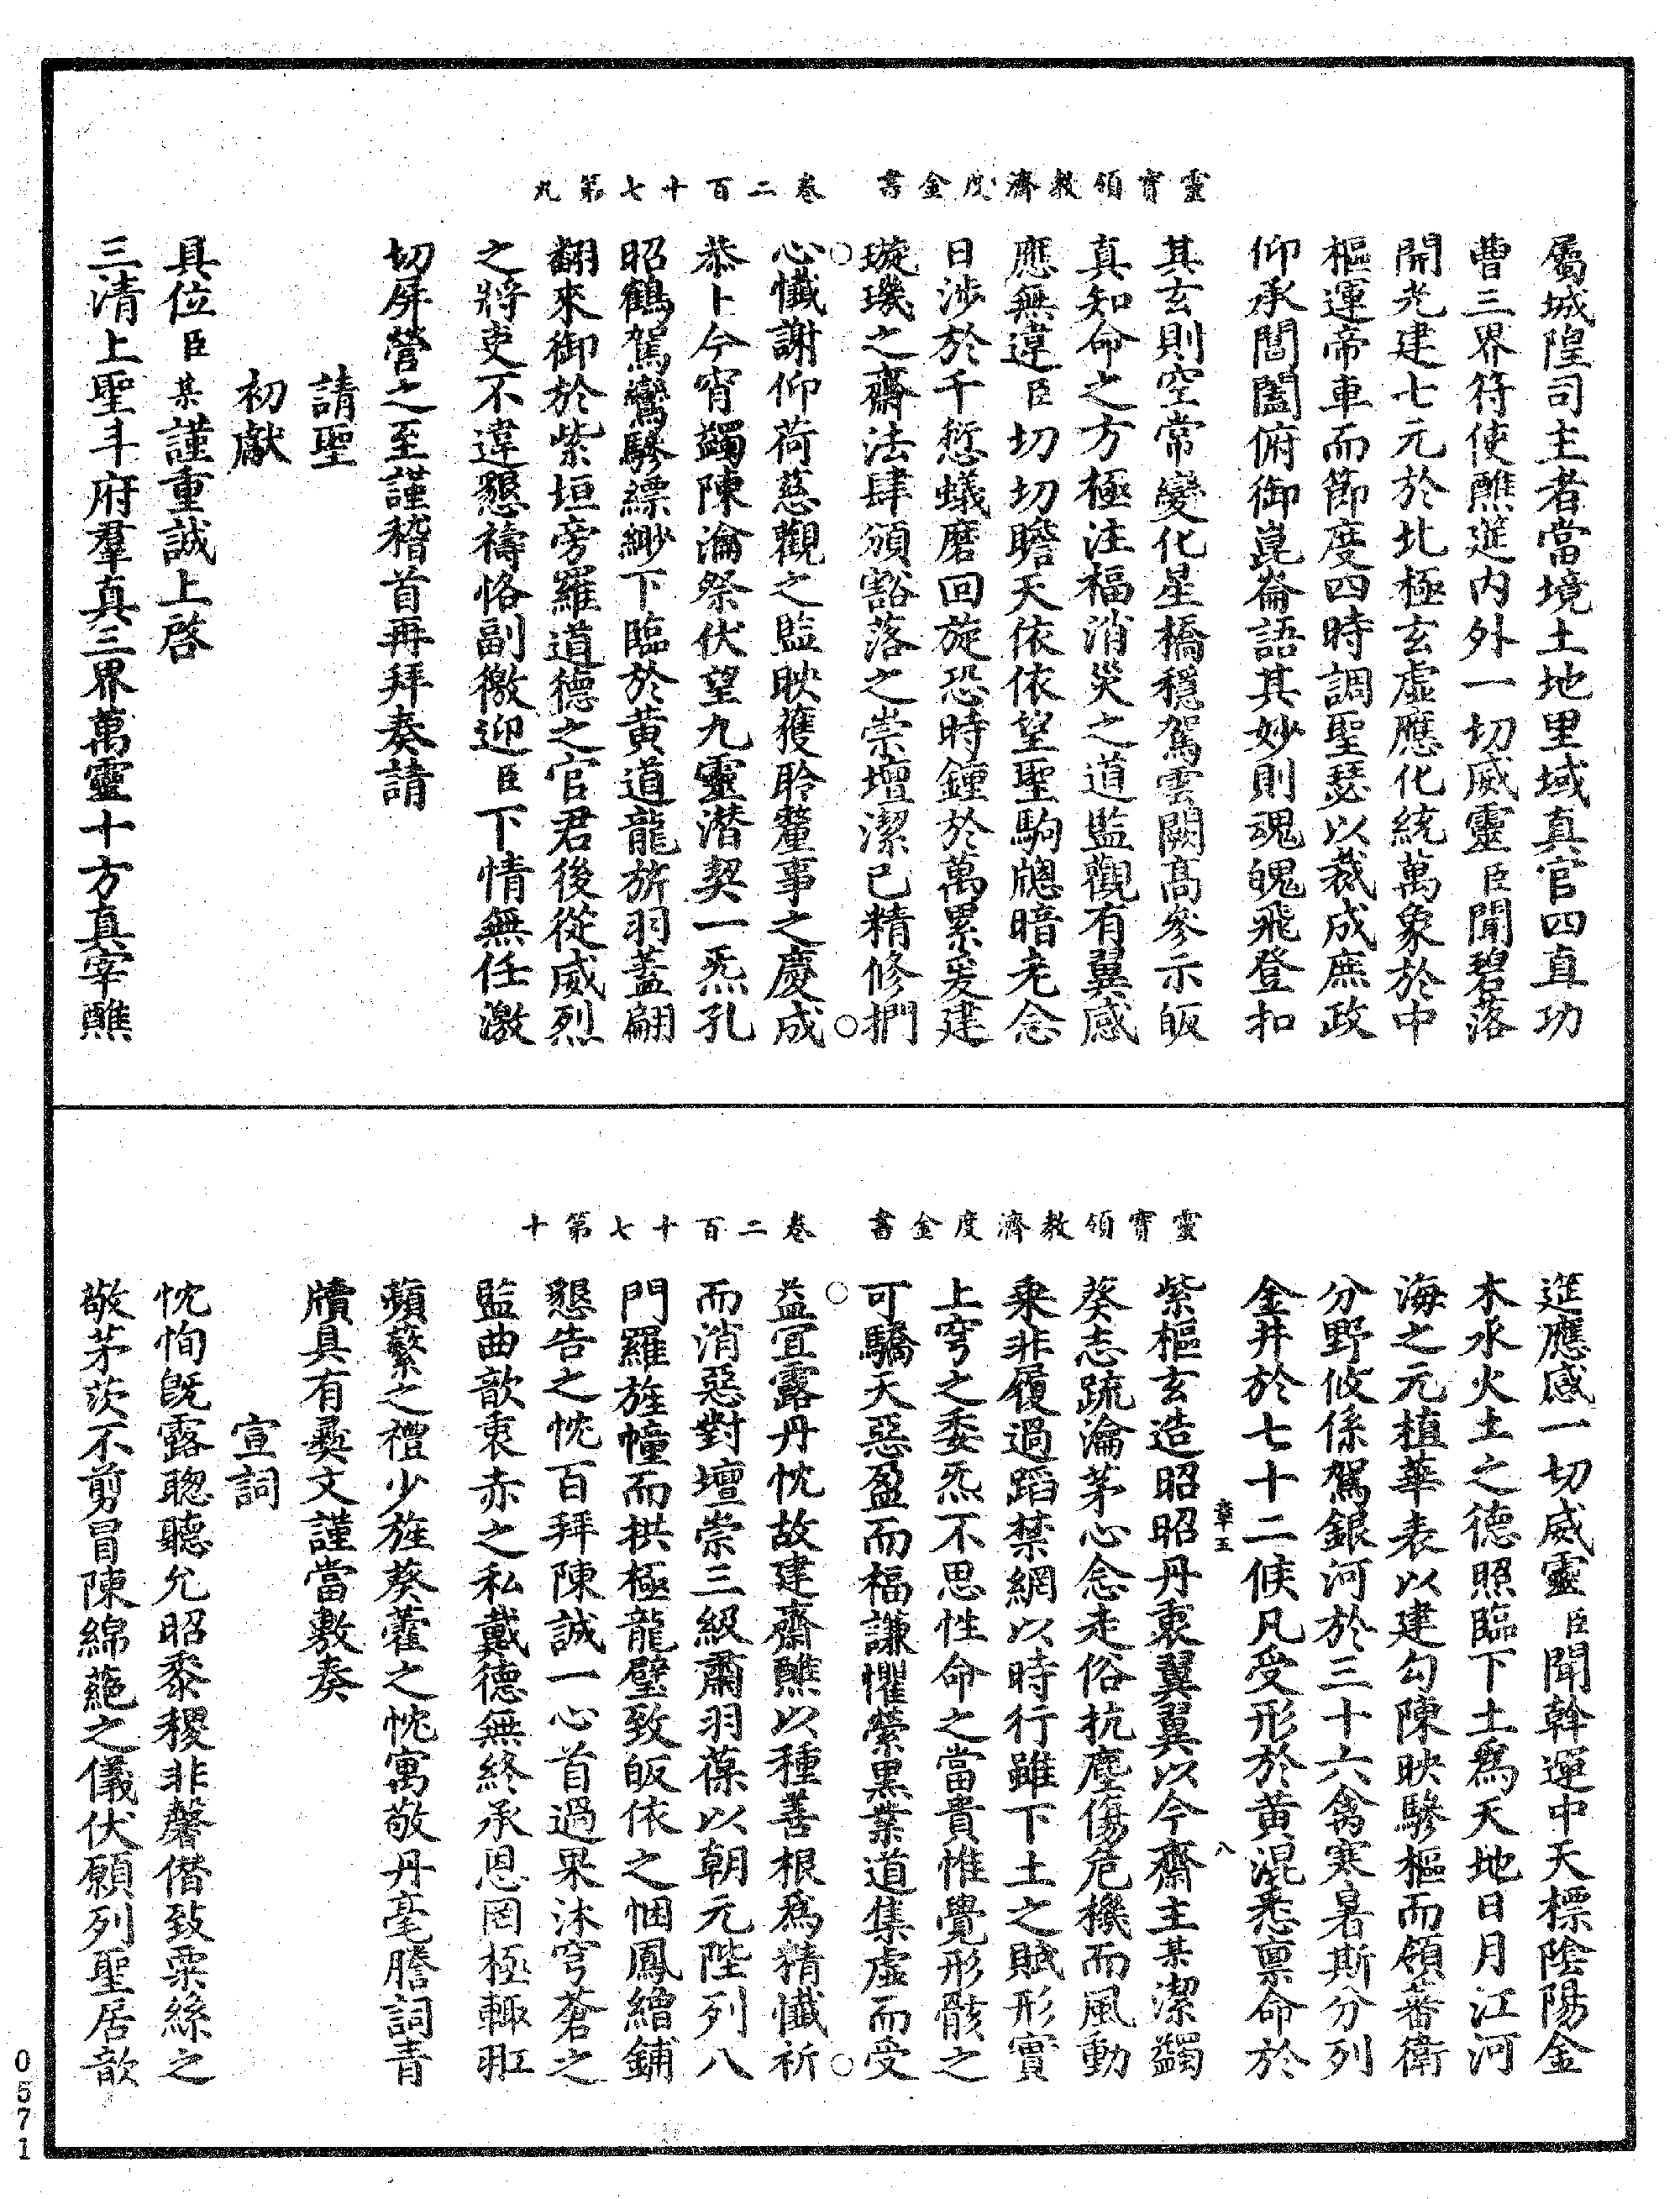 靈寶領教濟度金書　卷二百七十第九
屬城隍司主者當境土地里域真官四直功
曹三界符使醮筵内外一切威靈臣聞碧落
開光建七元於北極玄虛應化統萬象於中
樞運帝車而節度四時調聖瑟以裁成庶政
仰承閶闔俯御崑崙語其妙則魂魄飛登扣
其玄則空常變化星橋穩駕雲闕高參示皈
真知命之方極注福消災之道監觀有翼感
應無違臣切切瞻天依依望聖駒牕暗老念
日涉於千愆蟻磨回旋恐時鍾於萬累爰建
璇璣之齋法肆頒豁落之崇壇潔已精修捫
心懺謝仰荷慈觀之監映獲聆釐事之慶成
恭卜今宵蠲陳瀹祭伏望九靈潜契一炁孔
昭鶴駕鸞驂縹緲下臨於黄道龍旂羽蓋翩
翻來御於紫垣旁羅道德之官君後從威烈
之將吏不違懇禱恪副徼迎臣下情無任激
切屏營之至謹稽首再拜奏請
請聖
初獻
具位臣某謹重誠上啓
三清上聖斗府羣真三界萬靈十方真宰醮
靈寶領教濟度金書　卷二百七十第十
筵應感一切威靈臣聞幹運中天標陰陽金
木水火土之德照臨下土爲天地日月江河
海之元植華表以建勾陳映驂樞而領蕃衛
分野攸係駕銀河於三十六禽寒暑斯分列
金井於七十二候凡受形於黄混悉禀命於
章五
八
紫樞玄造昭昭丹衷翼翼以今齋主某潔蠲
葵志疏瀹茅心念走俗抗塵傷危機而風動
乗非履過蹈禁網以時行雖下土之賦形實
上穹之委炁不思性命之當貴惟覺形骸之
可驕天惡盈而福謙懼縈黒業道集虛而受
益宜露丹忱故建齋醮以種善根爲精懺祈
而消惡對壇崇三級肅羽葆以朝元陛列八
門羅旌幢而拱極龍璧致皈依之悃鳳繒鋪
懇告之忱百拜陳誠一心首過果沐穹蒼之
監曲歆衷赤之私戴德無終承恩罔極輙羾
蘋蘩之禮少旌葵藿之忱寓敬丹毫謄詞青
牘具有彛文謹當敷奏
宣詞
忱恂旣露聰聽允昭黍稷非馨僣致粟絲之
敬茅茨不剪冒陳綿蕝之儀伏願列聖居歆
0571